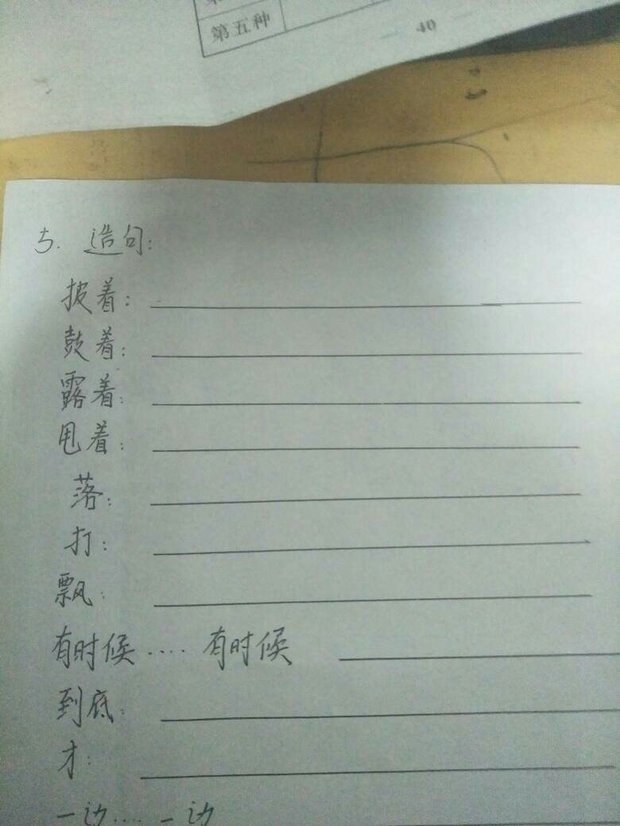 第五种
40
5. 造句:
披着:
鼓着:
露着:
甩着:
落:
打:
飘:
有时候....有时候
到底:
才:
一边....一边